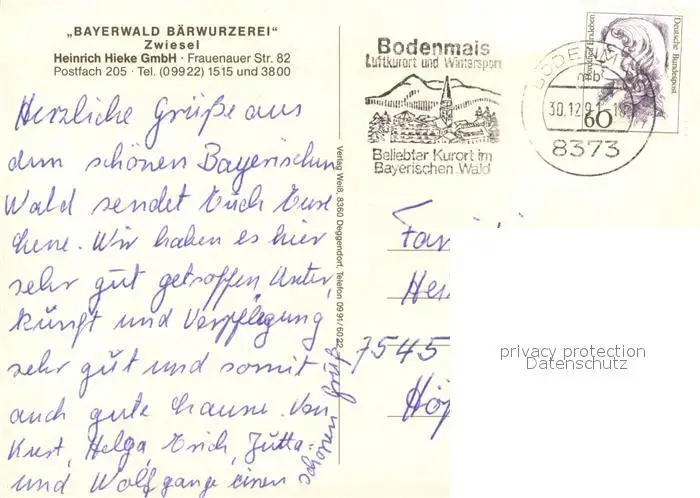 „BAYERWALD BÄRWURZEREI“
Zwiesel
Heinrich Hieke GmbH · Frauenauer Str. 82
Postfach 205 · Tel. (09922) 1515 und 3800
Herzliche Grüße aus
dem schönen Bayerischen
Wald sendet Euch Eure
Wir haben es hier
sehr gut getroffen Unter
kunft und Verpflegung
sehr gut und somit
auch gute Laune. Von
Kurt, Helga, Erich, Jutta
und Wolfgang einen
schönen Gruß
Verlag Weiß, 8360 Deggendorf, Telefon 0991/6022
Bodenmais
Luftkurort und Wintersport
Beliebter Kurort im
Bayerischen Wald
BODE
mb
30.12.91-18
8373
Deutsche Bundespost
60
Fam
Hei
7545
Höf
privacy protection
Datenschutz